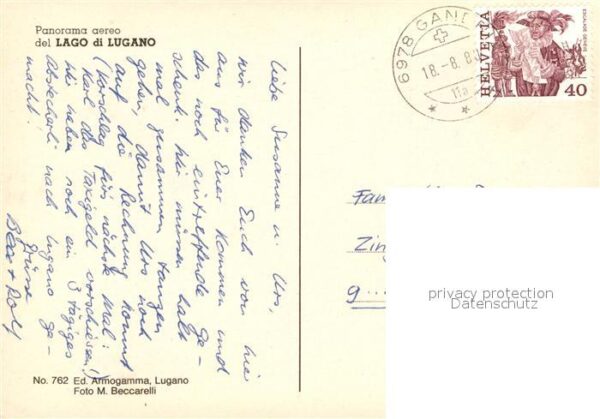 Panorama aereo
del LAGO di LUGANO
Liebe Susanne u. Urs,
wir danken Euch von hier
aus für Euer Kommen und
das noch eintreffende Ge-
schenk. Wir müssen halt
mal zusammen tanzen
gehen, damit Urs noch
auf die Rechnung kommt
(Vorschlag fürs nächste Mal:
Karl das Taxigeld vorschiessen!)
Wir haben noch ein 3 tägiges
Abstecherli nach Lugano ge-
macht.
Grüsse
Bea + Rolf
No. 762 Ed. Armogamma, Lugano
Foto M. Beccarelli
6978 GAND
18.-8.8
HELVETIA
ESCALADE GENÈVE
40
Fam
Zin
9
privacy protection
Datenschutz